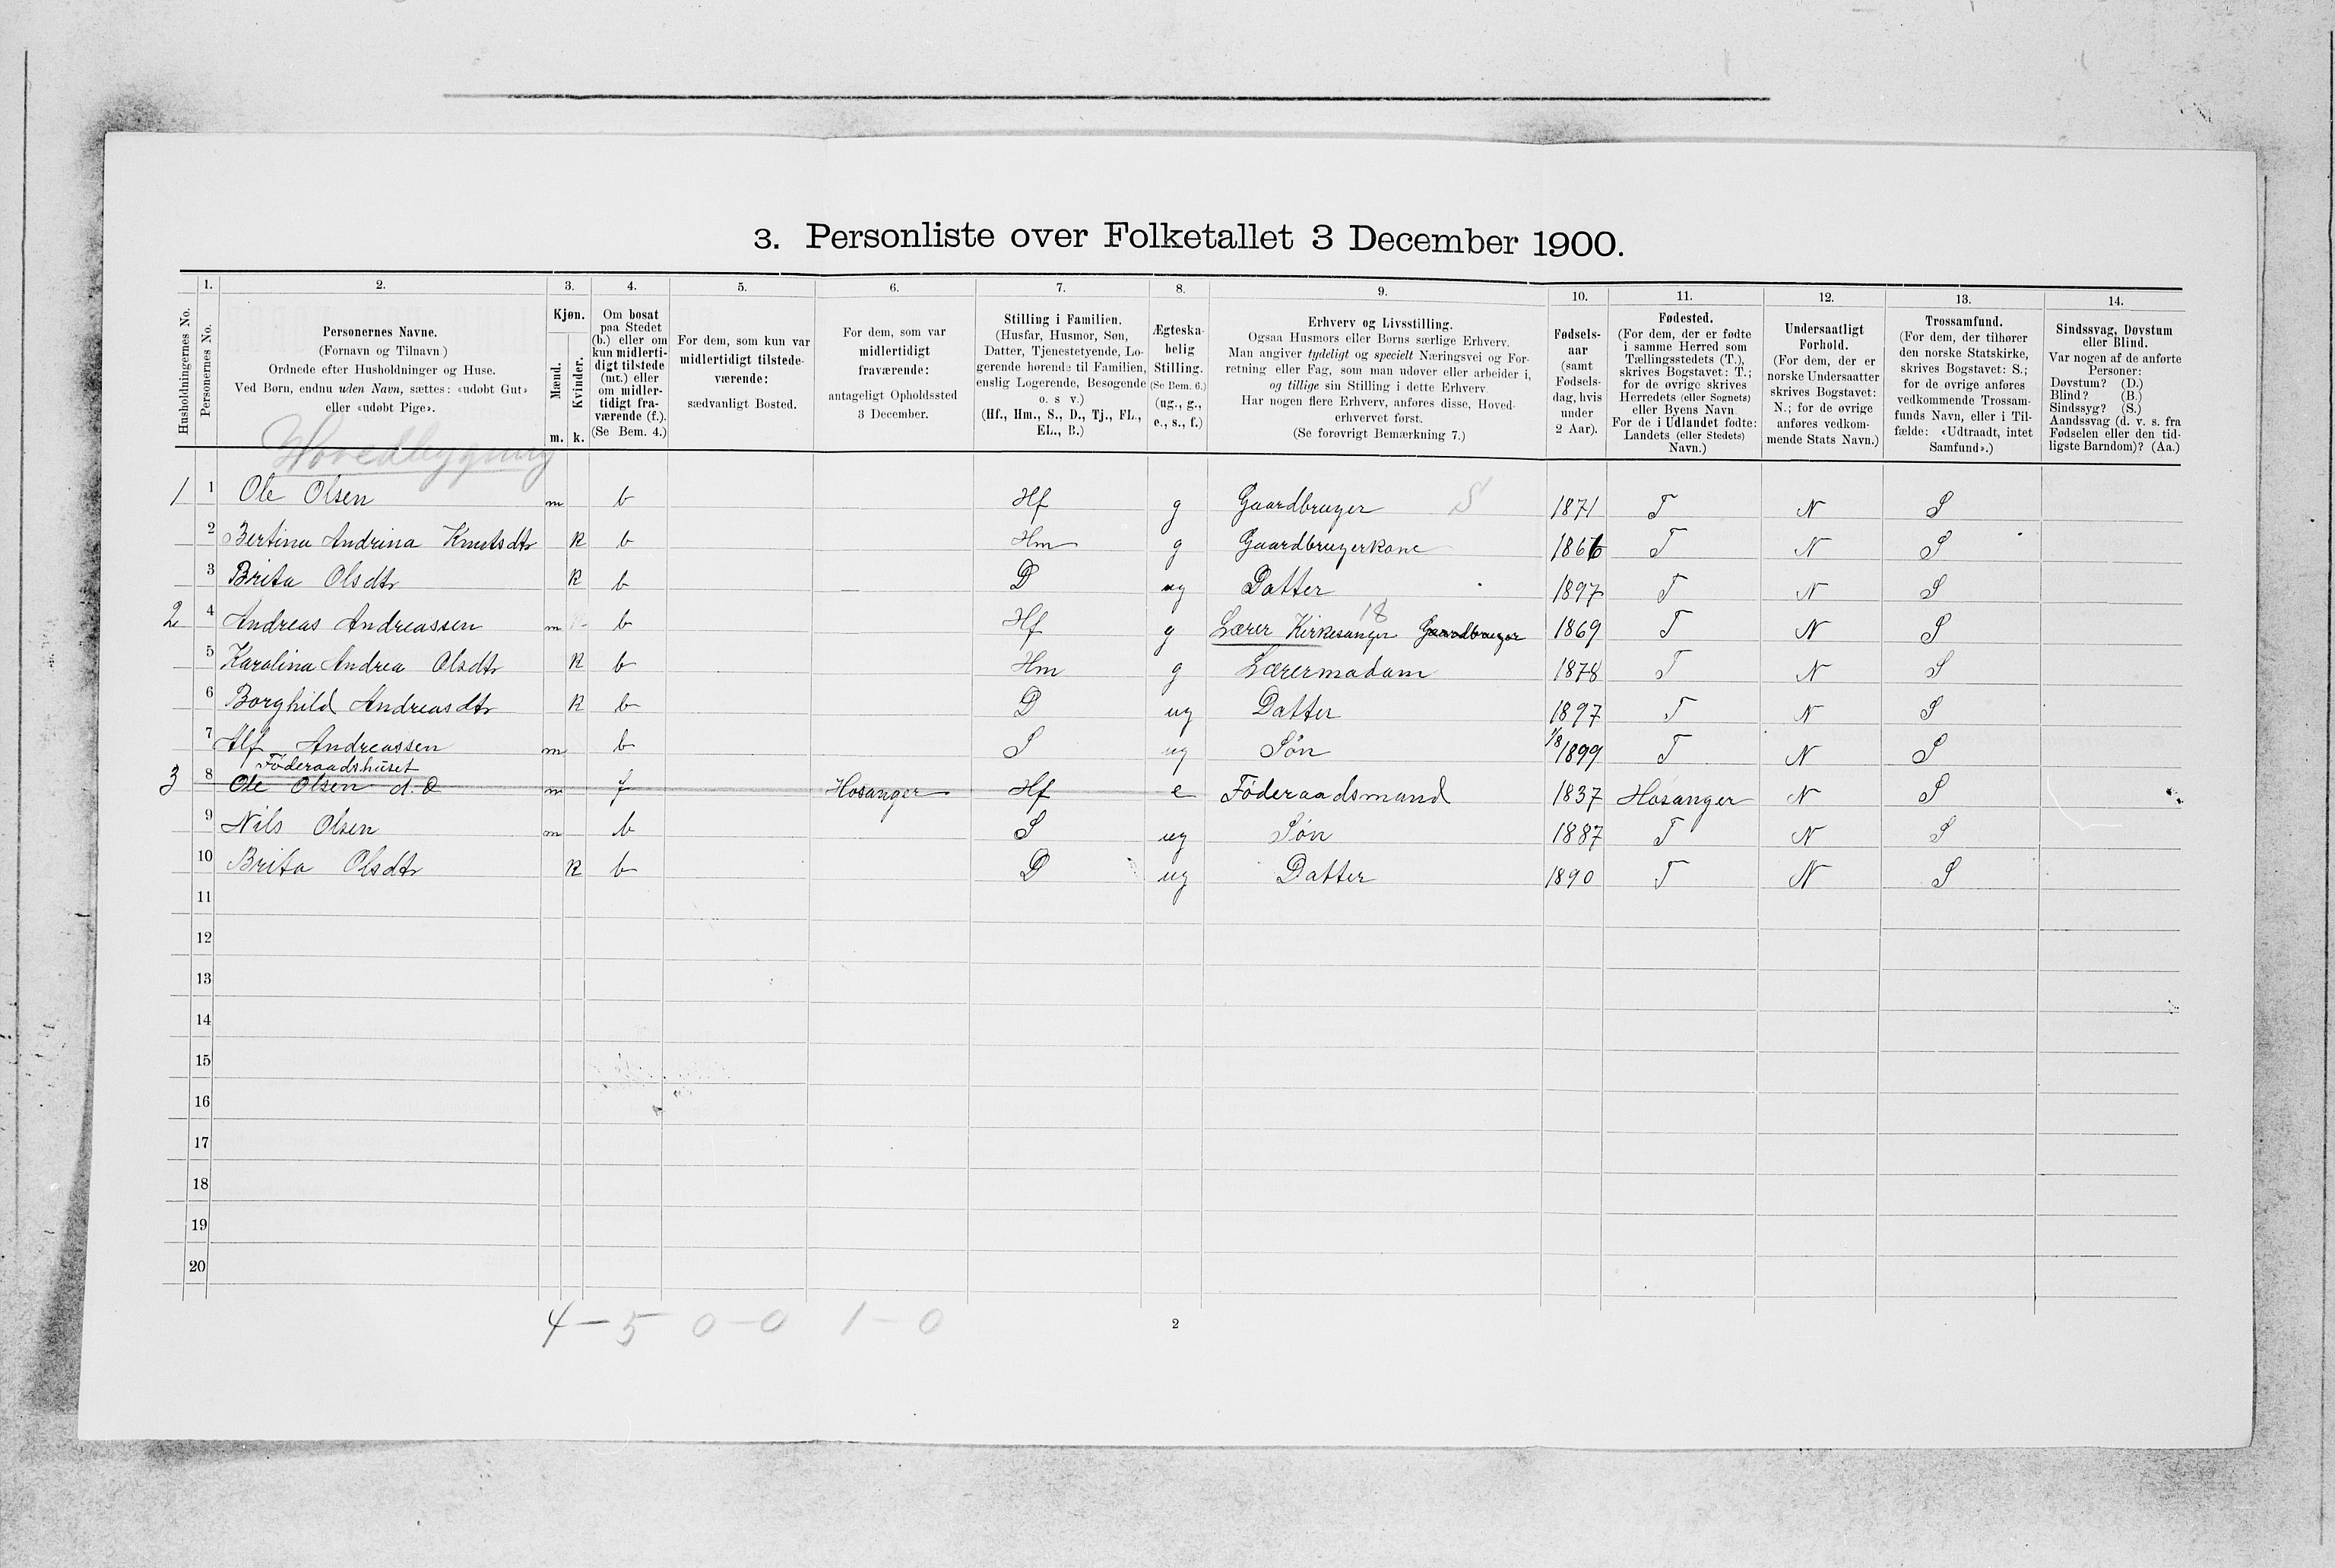 3. Personliste over Folketallet 3 December 1900.
1. 2. 3. 4. 5. 6. 7. 8. 9. 10. 11. 12. 13. 14.
Husholdningernes No.
Personernes No.
Personernes Navne.
(Fornavn og Tilnavn)
Ordnede efter Husholdninger og Huse.
Ved Børn, endnu uden Navn, sættes: «udøbt Gut»
eller «udøbt Pige».
Kjøn.
Mænd.
Kvinder.
m. k.
Om bosat
paa Stedet
(b.) eller om
kun midlerti-
digt tilstede
(mt.) eller
om midler-
tidigt fra-
værende (f.).
(Se Bem. 4.)
For dem, som kun var
midlertidigt tilstede-
værende:
sædvanligt Bosted.
For dem, som var
midlertidigt
fraværende:
antageligt Opholdssted
3 December.
Stilling i Familien.
(Husfar, Husmor, Søn,
Datter, Tjenestetyende, Lo-
gerende hørende til Familien,
enslig Logerende, Besøgende
o. s. v.)
(Hf., Hm., S., D., Tj., FL.,
EL., B.)
Ægteska-
belig
Stilling.
(Se Bem. 6.)
(ug., g.,
e., s., f.)
Erhverv og Livsstilling.
Ogsaa Husmors eller Børns særlige Erhverv.
Man angiver tydeligt og specielt Næringsvei og For-
retning eller Fag, som man udøver eller arbeider i,
og tillige sin Stilling i dette Erhverv.
Har nogen flere Erhverv, anføres disse, Hoved-
erhvervet først.
(Se forøvrigt Bemærkning 7.)
Fødsels-
aar
(samt
Fødsels-
dag, hvis
under
2 Aar).
Fødested.
(For dem, der er fødte
i samme Herred som
Tællingsstedets (T.),
skrives Bogstavet: T.;
for de øvrige skrives
Herredets (eller Sognets)
eller Byens Navn.
For de i Udlandet fødte:
Landets (eller Stedets)
Navn.)
Undersaatligt
Forhold.
(For dem, der er
norske Undersaatter
skrives Bogstavet:
N.; for de øvrige
anføres vedkom-
mende Stats Navn.)
Trossamfund.
(For dem, der tilhører
den norske Statskirke,
skrives Bogstavet: S.;
for de øvrige anføres
vedkommende Trossam-
funds Navn, eller i Til-
fælde: «Udtraadt, intet
Samfund».)
Sindssvag, Døvstum
eller Blind.
Var nogen af de anførte
Personer:
Døvstum? (D.)
Blind? (B.)
Sindssyg? (S.)
Aandssvag (d. v. s. fra
Fødselen eller den tid-
ligste Barndom)? (Aa.)
Hovedbygning
1 1 Ole Olsen m b Hf g Gaardbruger S 1871 T N S
2 Bertina Andrina Knutsdtr k b Hm g Gaardbrugerkone 1866 T N S
3 Brita Olsdtr k b D ug Datter 1897 T N S
2 4 Andreas Andreassen m b Hf g Lærer Kirkesanger Gaardbruger 18 1869 T N S
5 Karolina Andrea Olsdtr k b Hm g Lærermadam 1878 T N S
6 Borghild Andreasdtr k b D ug Datter 1897 T N S
7 Alf Andreassen m b S ug Søn 1/8 1899 T N S
Föderaadshuset
3 8 Ole Olsen d. Æ m f Hosanger Hf e Föderaadsmand 1837 Hosanger N S
9 Nils Olsen m b S ug Søn 1887 T N S
10 Brita Olsdtr k b D ug Datter 1890 T N S
11
12
13
14
15
16
17
18
19
20
4 - 5 0 - 0 1 - 0
2